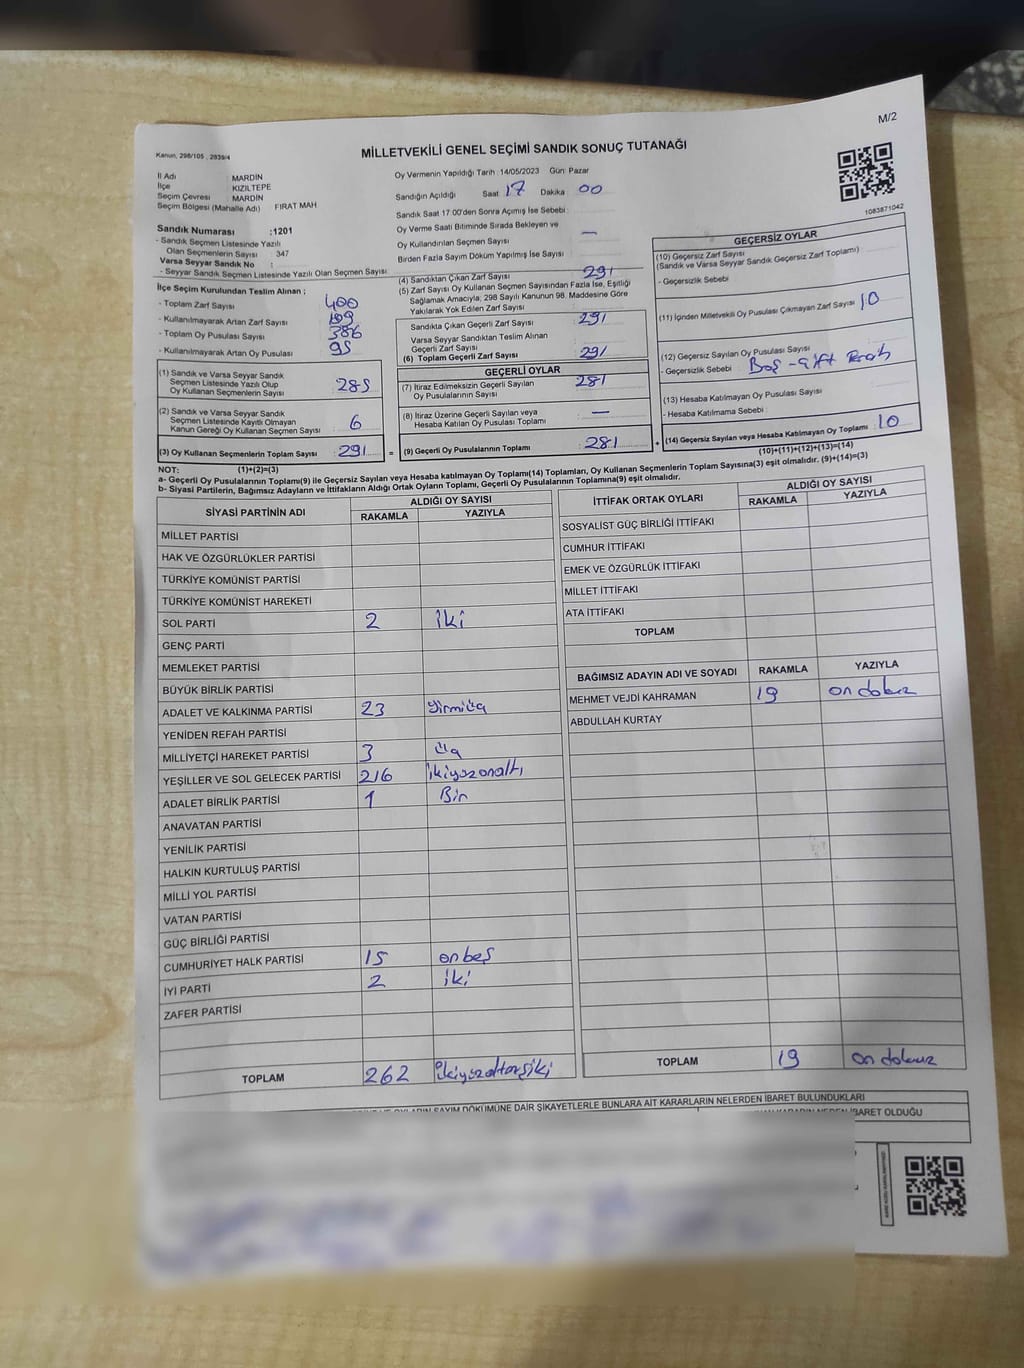 M/2
Kanun, 298/105 , 2839/4
MİLLETVEKİLİ GENEL SEÇİMİ SANDIK SONUÇ TUTANAĞI
İl Adı : MARDİN
İlçe : KIZILTEPE
Seçim Çevresi : MARDİN
Seçim Bölgesi (Mahalle Adı) : FIRAT MAH
Sandık Numarası :1201
- Sandık Seçmen Listesinde Yazılı
Olan Seçmenlerin Sayısı : 347
Varsa Seyyar Sandık No :
- Seyyar Sandık Seçmen Listesinde Yazılı Olan Seçmen Sayısı :
Oy Vermenin Yapıldığı Tarih :14/05/2023 Gün: Pazar
Sandığın Açıldığı Saat 17 Dakika 00
Sandık Saat 17.00'den Sonra Açımış İse Sebebi :
Oy Verme Saati Bitiminde Sırada Bekleyen ve
Oy Kullandırılan Seçmen Sayısı —
Birden Fazla Sayım Döküm Yapılmış İse Sayısı :
1083871042
İlçe Seçim Kurulundan Teslim Alınan ;
- Toplam Zarf Sayısı : 400
- Kullanılmayarak Artan Zarf Sayısı : 109
- Toplam Oy Pusulası Sayısı : 386
- Kullanılmayarak Artan Oy Pusulası : 95
(1) Sandık ve Varsa Seyyar Sandık
Seçmen Listesinde Yazılı Olup
Oy Kullanan Seçmenlerin Sayısı : 285
(2) Sandık ve Varsa Seyyar Sandık
Seçmen Listesinde Kayıtlı Olmayan
Kanun Gereği Oy Kullanan Seçmen Sayısı : 6
(3) Oy Kullanan Seçmenlerin Toplam Sayısı : 291 =
(4) Sandıktan Çıkan Zarf Sayısı : 291
(5) Zarf Sayısı Oy Kullanan Seçmen Sayısından Fazla İse, Eşitliği
Sağlamak Amacıyla, 298 Sayılı Kanunun 98. Maddesine Göre
Yakılarak Yok Edilen Zarf Sayısı :
Sandıkta Çıkan Geçerli Zarf Sayısı : 291
Varsa Seyyar Sandıktan Teslim Alınan
Geçerli Zarf Sayısı
(6) Toplam Geçerli Zarf Sayısı : 291
GEÇERLİ OYLAR
(7) İtiraz Edilmeksizin Geçerli Sayılan : 281
Oy Pusulalarının Sayısı
(8) İtiraz Üzerine Geçerli Sayılan veya : —
Hesaba Katılan Oy Pusulası Toplamı
(9) Geçerli Oy Pusulalarının Toplamı : 281 +
GEÇERSİZ OYLAR
(10) Geçersiz Zarf Sayısı
(Sandık ve Varsa Seyyar Sandık Geçersiz Zarf Toplamı) :
- Geçersizlik Sebebi :
(11) İçinden Milletvekili Oy Pusulası Çıkmayan Zarf Sayısı : 10
(12) Geçersiz Sayılan Oy Pusulası Sayısı :
- Geçersizlik Sebebi : Boş - Çift
(13) Hesaba Katılmayan Oy Pusulası Sayısı :
- Hesaba Katılmama Sebebi :
(14) Geçersiz Sayılan veya Hesaba Katılmayan Oy Toplamı : 10
(10)+(11)+(12)+(13)=(14)
NOT: (1)+(2)=(3)
a- Geçerli Oy Pusulalarının Toplamı(9) ile Geçersiz Sayılan veya Hesaba katılmayan Oy Toplamı(14) Toplamları, Oy Kullanan Seçmenlerin Toplam Sayısına(3) eşit olmalıdır. (9)+(14)=(3)
b- Siyasi Partilerin, Bağımsız Adayların ve İttifakların Aldığı Ortak Oyların Toplamı, Geçerli Oy Pusulalarının Toplamına(9) eşit olmalıdır.
SİYASİ PARTİNİN ADI ALDIĞI OY SAYISI
RAKAMLA YAZIYLA
MİLLET PARTİSİ
HAK VE ÖZGÜRLÜKLER PARTİSİ
TÜRKİYE KOMÜNİST PARTİSİ
TÜRKİYE KOMÜNİST HAREKETİ
SOL PARTİ 2 iki
GENÇ PARTİ
MEMLEKET PARTİSİ
BÜYÜK BİRLİK PARTİSİ
ADALET VE KALKINMA PARTİSİ 23 yirmiüç
YENİDEN REFAH PARTİSİ
MİLLİYETÇİ HAREKET PARTİSİ 3 üç
YEŞİLLER VE SOL GELECEK PARTİSİ 216 ikiyüzonaltı
ADALET BİRLİK PARTİSİ 1 Bir
ANAVATAN PARTİSİ
YENİLİK PARTİSİ
HALKIN KURTULUŞ PARTİSİ
MİLLİ YOL PARTİSİ
VATAN PARTİSİ
GÜÇ BİRLİĞİ PARTİSİ
CUMHURİYET HALK PARTİSİ 15 onbeş
İYİ PARTİ 2 iki
ZAFER PARTİSİ
TOPLAM 262 ikiyüzaltmışiki
İTTİFAK ORTAK OYLARI ALDIĞI OY SAYISI
RAKAMLA YAZIYLA
SOSYALİST GÜÇ BİRLİĞİ İTTİFAKI
CUMHUR İTTİFAKI
EMEK VE ÖZGÜRLÜK İTTİFAKI
MİLLET İTTİFAKI
ATA İTTİFAKI
TOPLAM
BAĞIMSIZ ADAYIN ADI VE SOYADI RAKAMLA YAZIYLA
MEHMET VEJDİ KAHRAMAN 19 on dokuz
ABDULLAH KURTAY
TOPLAM 19 on dokuz
SAYIM DÖKÜMÜNE DAİR ŞİKAYETLERLE BUNLARA AİT KARARLARIN NELERDEN İBARET BULUNDUKLARI
İBARET OLDUĞU